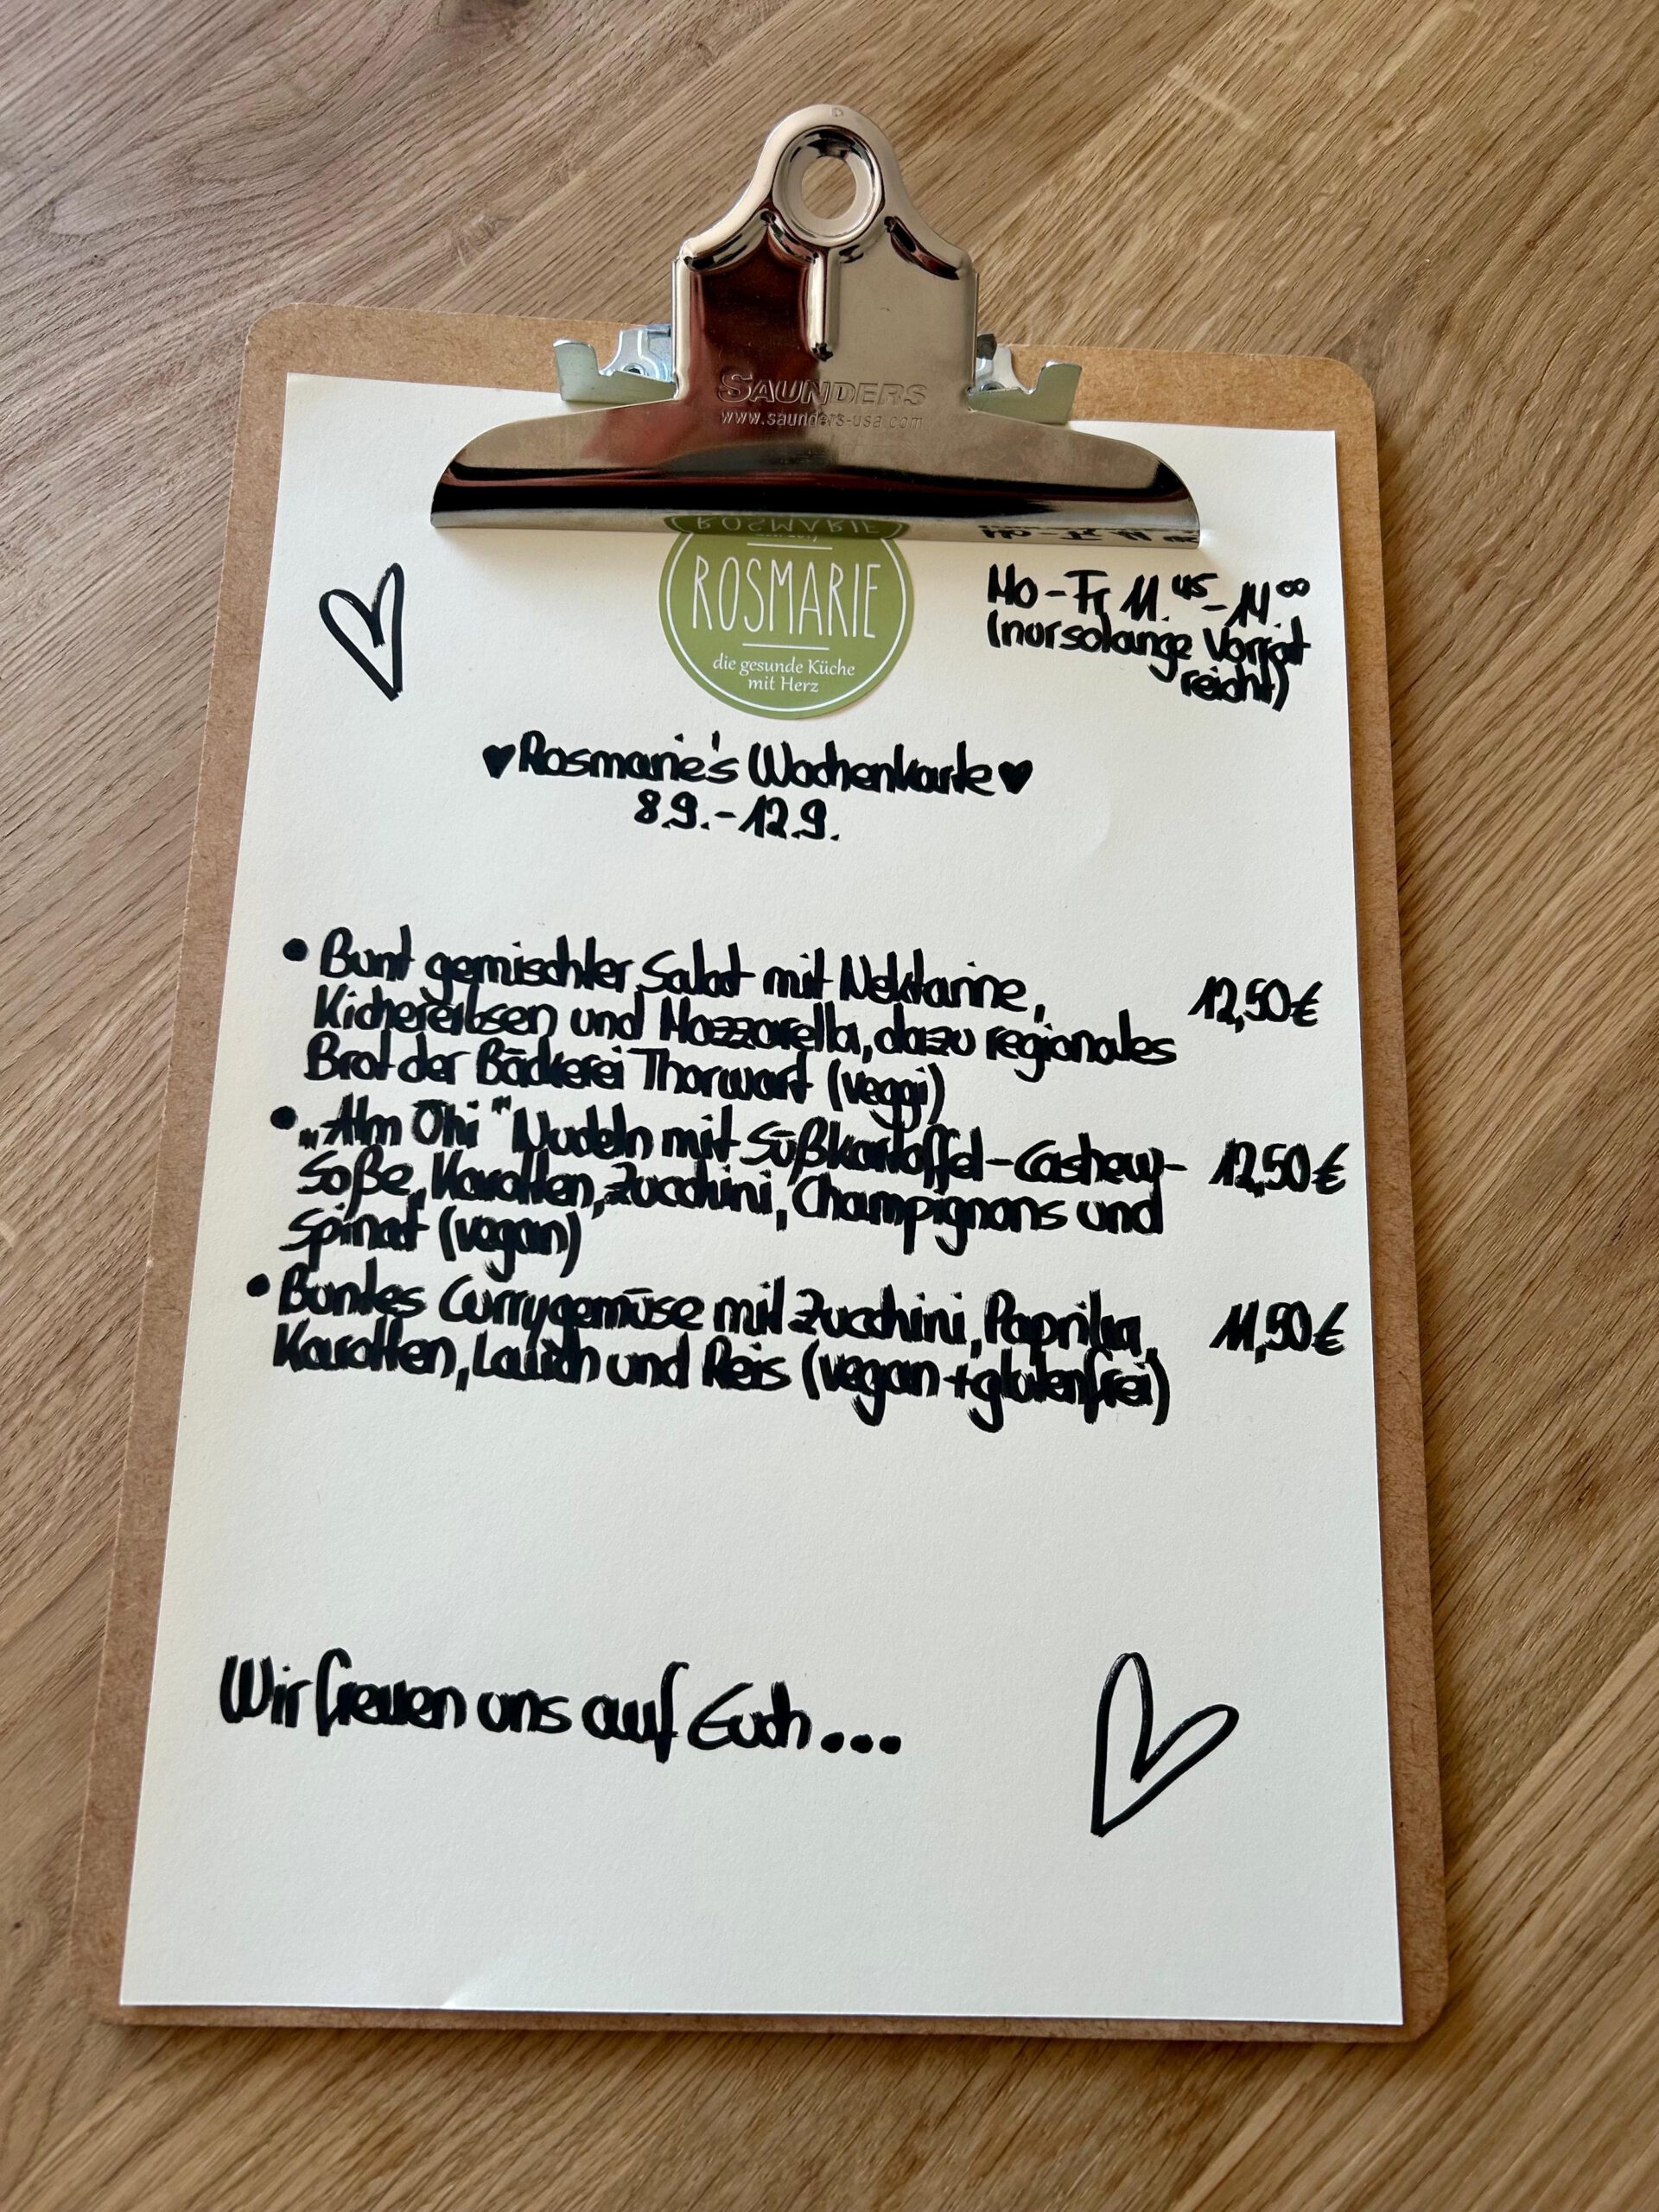 SAUNDERS
www.saunders-usa.com
ROSMARIE
die gesunde Küche
mit Herz
Mo-Fr 11.45-14.00
(nur solange Vorrat
reicht)
♥Rosmarie's Wochenkarte♥
8.9.-12.9.
• Bunt gemischter Salat mit Nektarine,
Kichererbsen und Mozzarella, dazu regionales
Brot der Bäckerei Thorwart (veggi)
12,50€
• „Alm Öhi" Nudeln mit Süßkartoffel-Cashew-
Soße, Karotten, Zucchini, Champignons und
Spinat (vegan)
12,50€
• Buntes Currygemüse mit Zucchini, Paprika,
Karotten, Lauch und Reis (vegan+glutenfrei)
11,50€
Wir freuen uns auf Euch...